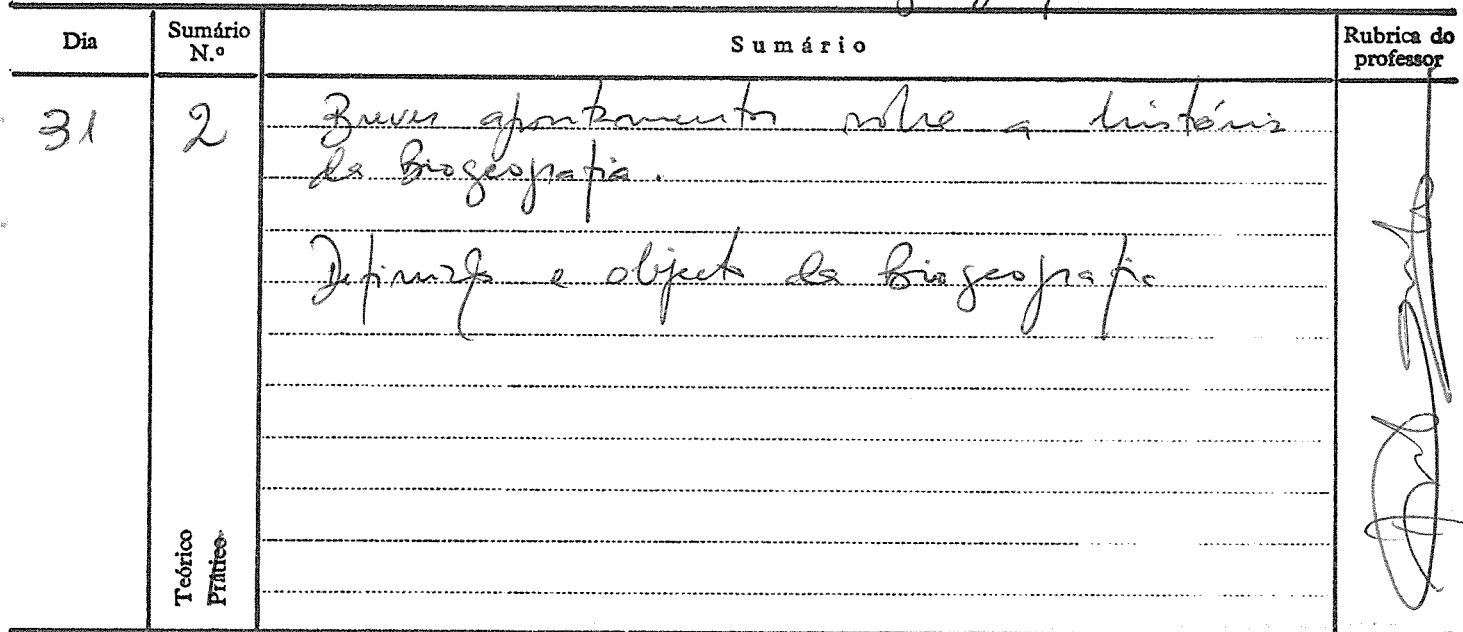 Dia
Sumário N.º
Sumário
Rubrica do professor
31
2
Breves apontamentos sobre a história
da Biogeografia.
Definição e objecto da Biogeografia
Teórico
Prático